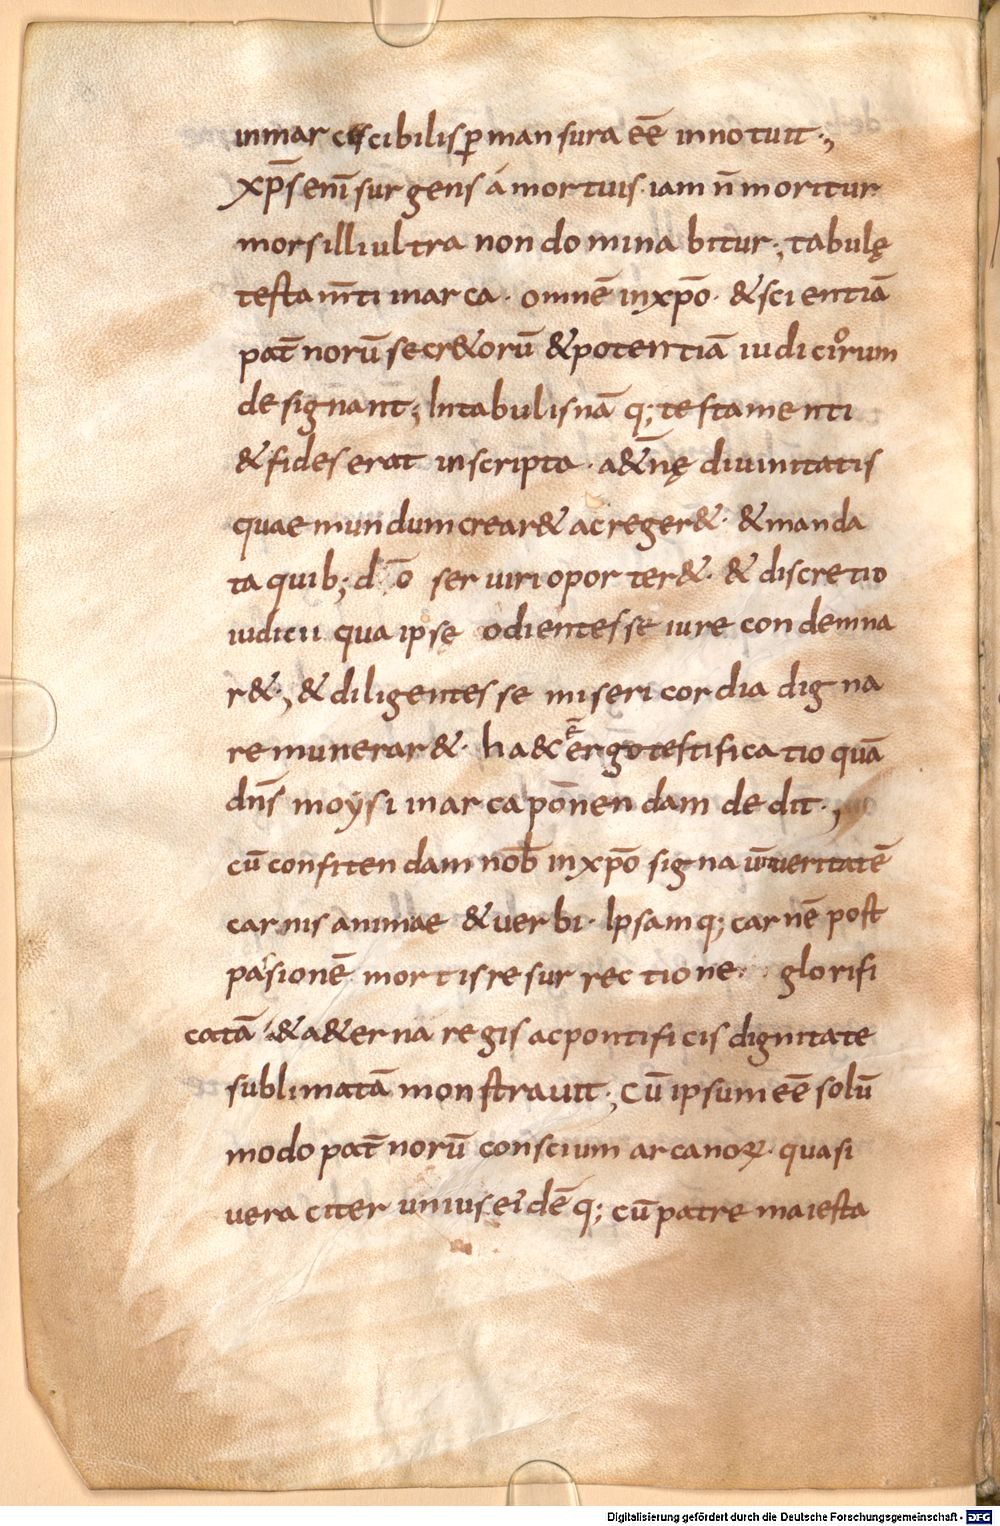 inmarcescibilis p̄mansura eē innotuit·,
xp̄s enī surgens á mortuis· iam n̄ moritur
mors illi ultra non dominabitur·, tabulę
testam̄ti in arca· omnē in xp̄o· & scientiā
pat̄norū secr&orū & potentiā iudiciorum
designant; In tabulis nāq; testamenti
& fides erat inscripta· a&n̄ę divinitatis
quae mundum crear& ac reger&· & manda
ta quib; dō serviri oporter&· & discretio
iudicii qua ip se odientes se iure condemna
r&·, & diligentes se misericordia digna
remunerar&· haec ē ergo testificatio quā
dn̄s moysi in arca ponendam dedit·,
cū confitendam nob̄ in xp̄o signavit veritatē
carnis animae & verbi· Ipsamq; carnē post
passionē mortis resurrectione glorifi
catā & a&erna regis ac pontificis dignitate
sublimatā monstravit·, Cū ipsum eē solū
modo pat̄norū conscium arcanoꝝ· quasi
veraciter unius eidēq; cū patre maiesta
Digitalisierung gefördert durch die Deutsche Forschungsgemeinschaft - DFG